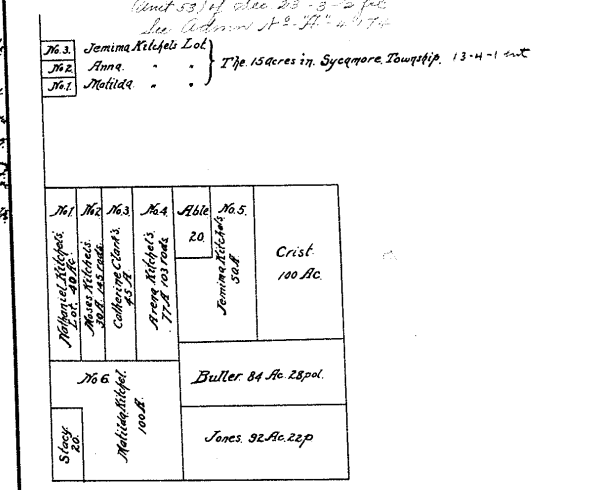 (Unit 53) of Sec. 23-3-2
See Admn No. "A" 4974
No. 3. Jemima Kitchels Lot
No. 2 Anna. " "
No. 1. Matilda. " "
The 15 acres in. Sycamore. Township. 13-4-1
No 1. Nathaniel Kitchels. Lot. 40 Ac.
No 2 Moses Kitchels. 30 A. 145 rods.
No. 3. Catherine Clark's. 45 A
No. 4. Arena Kitchel's. 77 A 103 rods
Able 20.
No. 5. Jemima Kitchels 50 A
Crist. 100 Ac.
No 6. Matilda Kitchel. 100 A.
Stacy. 20.
Buller. 84 Ac. 28 pol.
Jones. 92 Ac. 22 p